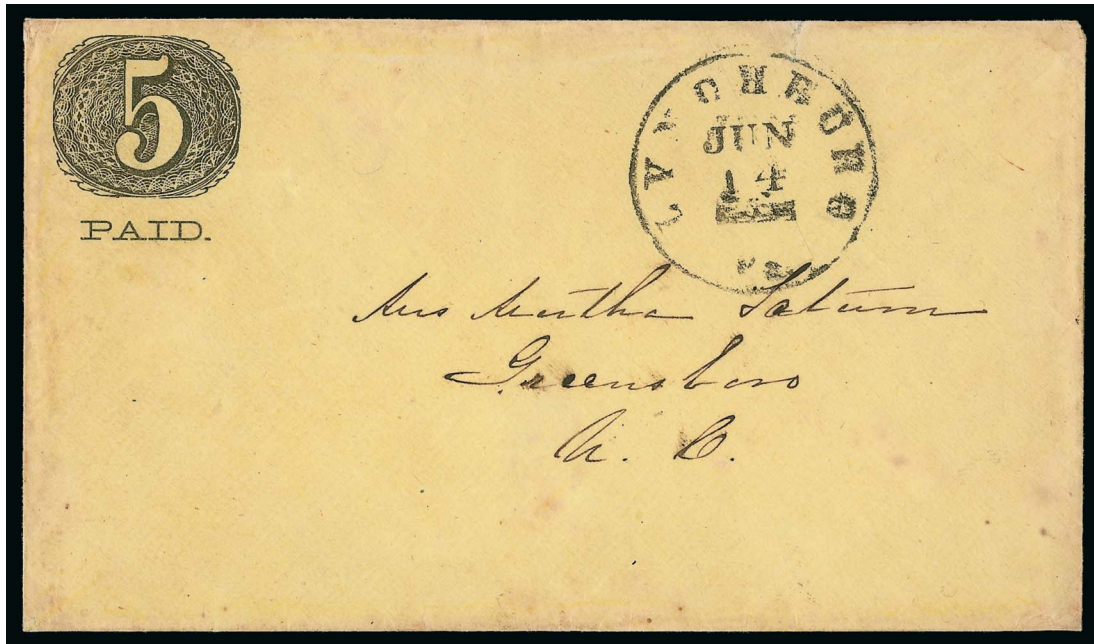 5
PAID.
LYNCHBURG
JUN
14
Va.
Miss Martha Tatum
Greensboro
N. C.